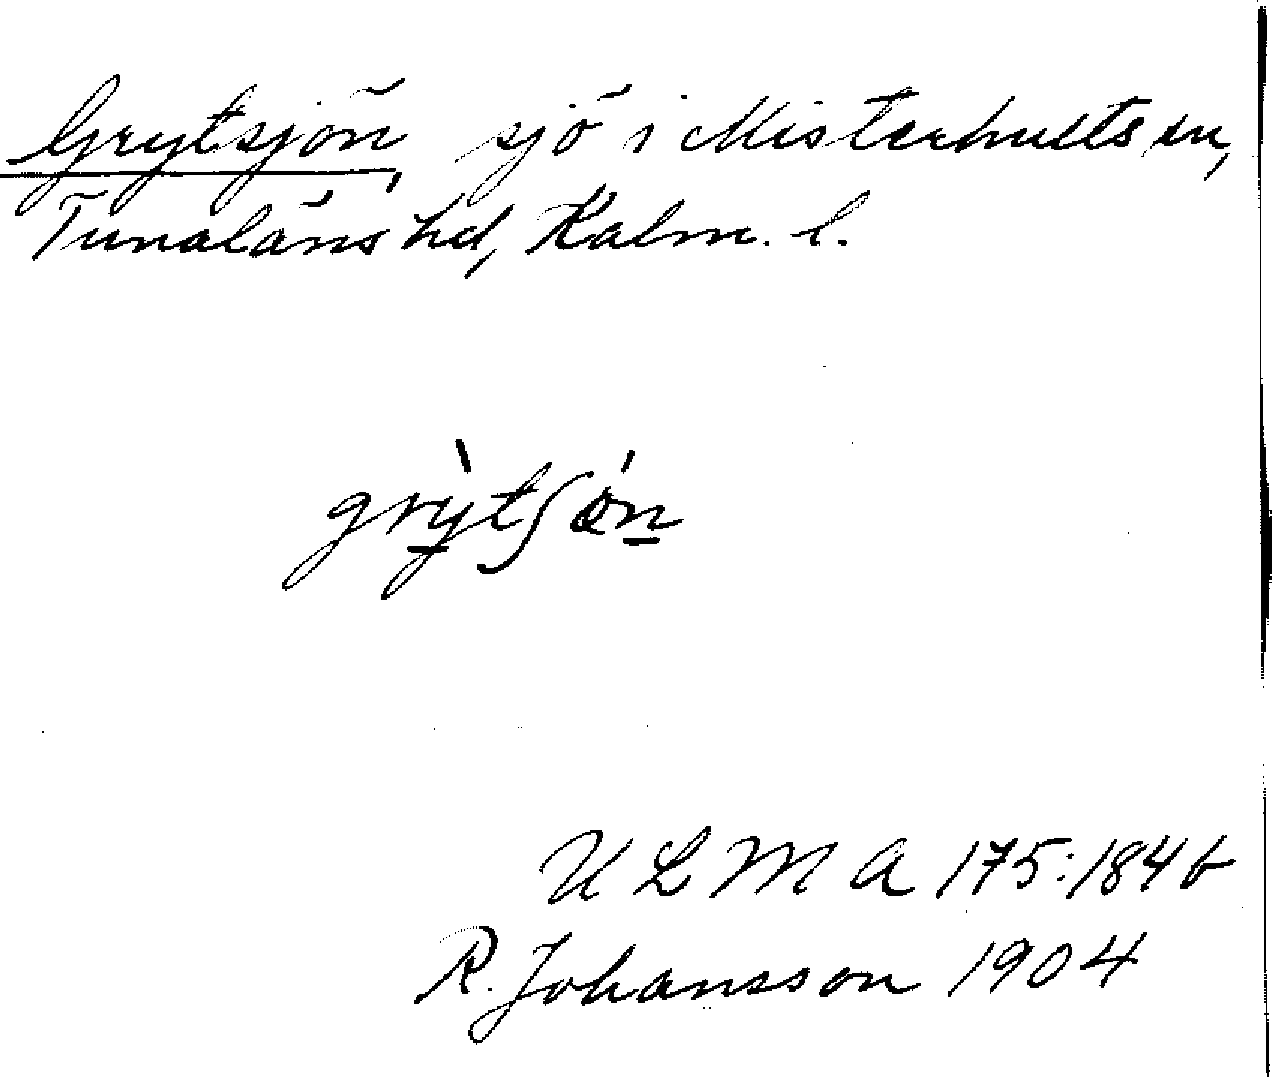 Grytsjön, sjö i Misterhults sn,
Tunaläns hd, Kalm. l.
grỳtʃǿn
ULMA 175:184 b
R. Johansson 1904